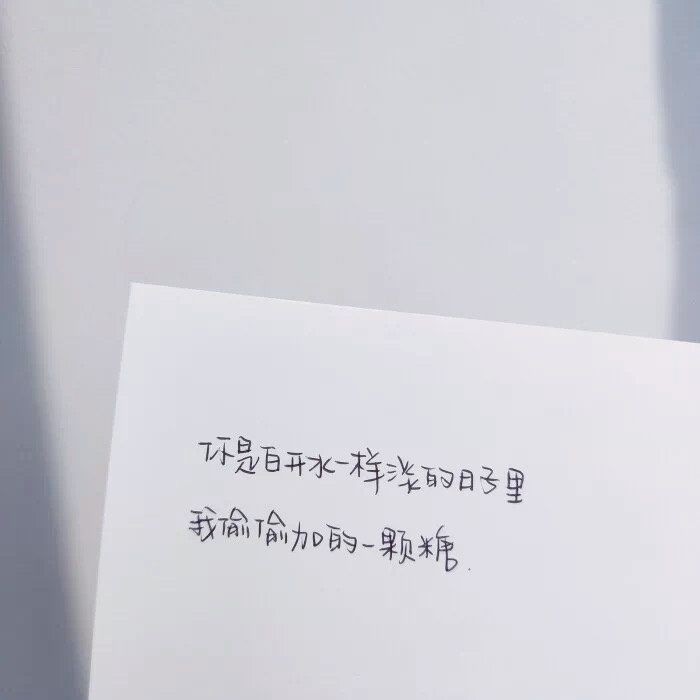 你是白开水一样淡的日子里
我偷偷加的一颗糖.